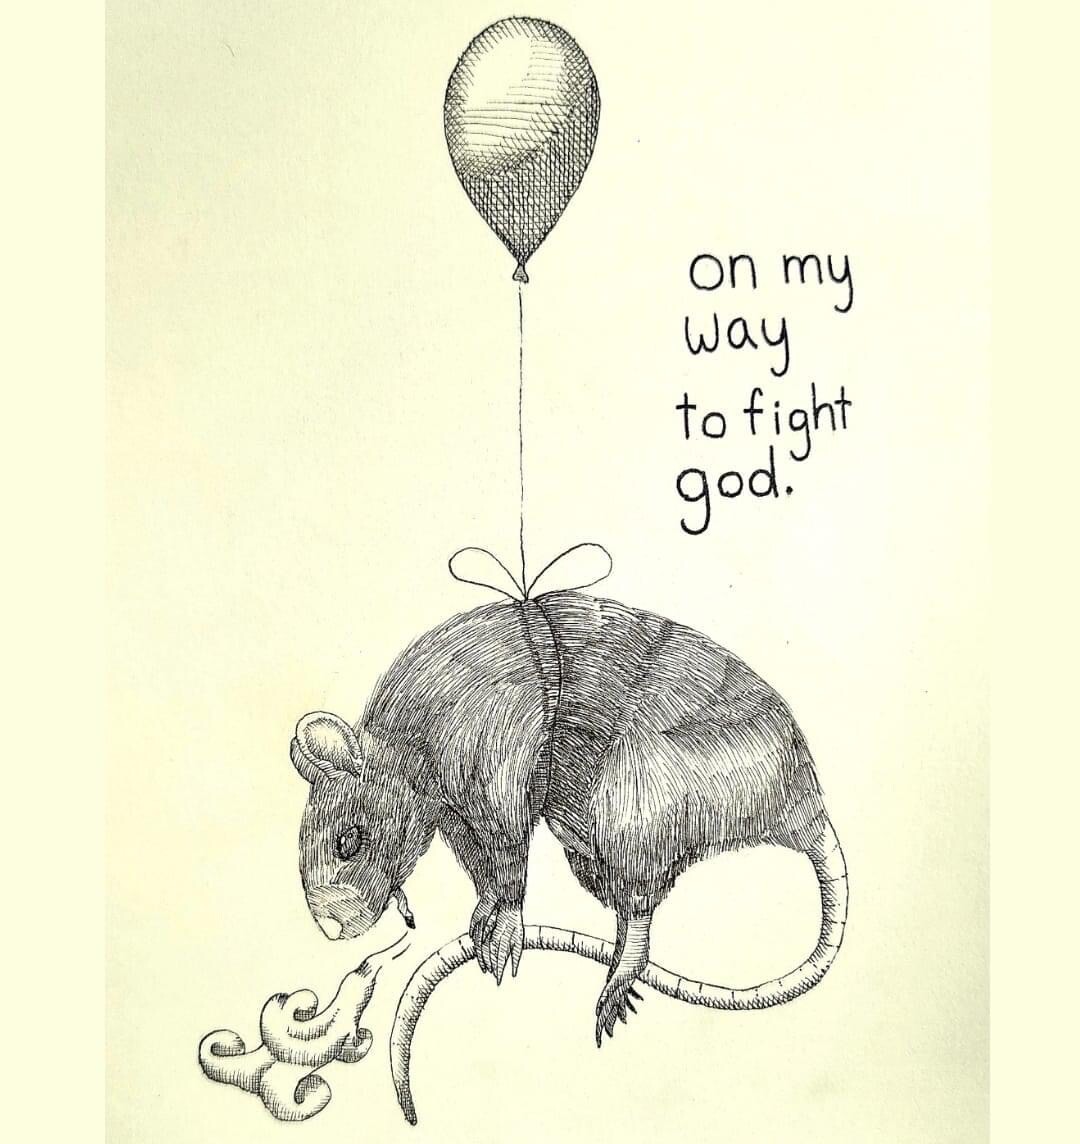 on my
way
to fight
god.